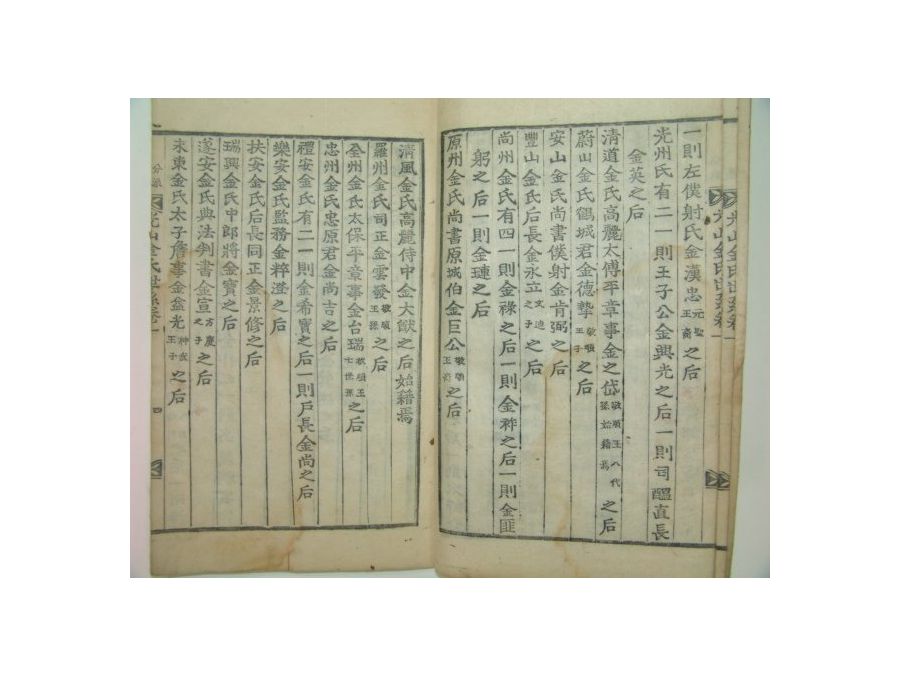 一則左僕射氏金漢忠元聖王裔之后
光州氏有二一則王子公金興光之后一則司醞直長
金英之后
清道金氏高麗太傅平章事金之岱敬順王八代孫始籍焉之后
蔚山金氏鶴城君金德摯敬順王子之后
安山金氏尚書僕射金肯弼之后
豐山金氏后長金永立文迪之子之后
尚州金氏有四一則金祿之后一則金祚之后一則金匪
躬之后一則金璉之后
原州金氏尚書原城伯金巨公敬順王裔之后
清風金氏高麗侍中金大猷之后始籍焉
羅州金氏司正金雲發敬順王孫之后
全州金氏太保平章事金台瑞敬順王七世孫之后
忠州金氏忠原君金尚吉之后
禮安金氏有二一則金希寶之后一則戶長金尚之后
樂安金氏監務金粹澄之后
扶安金氏后長同正金景修之后
瑞興金氏中郎將金寶之后
遂安金氏典法判書金宣方慶之子之后
永東金氏太子詹事金益光神武王子之后
光山金氏世系卷一
四